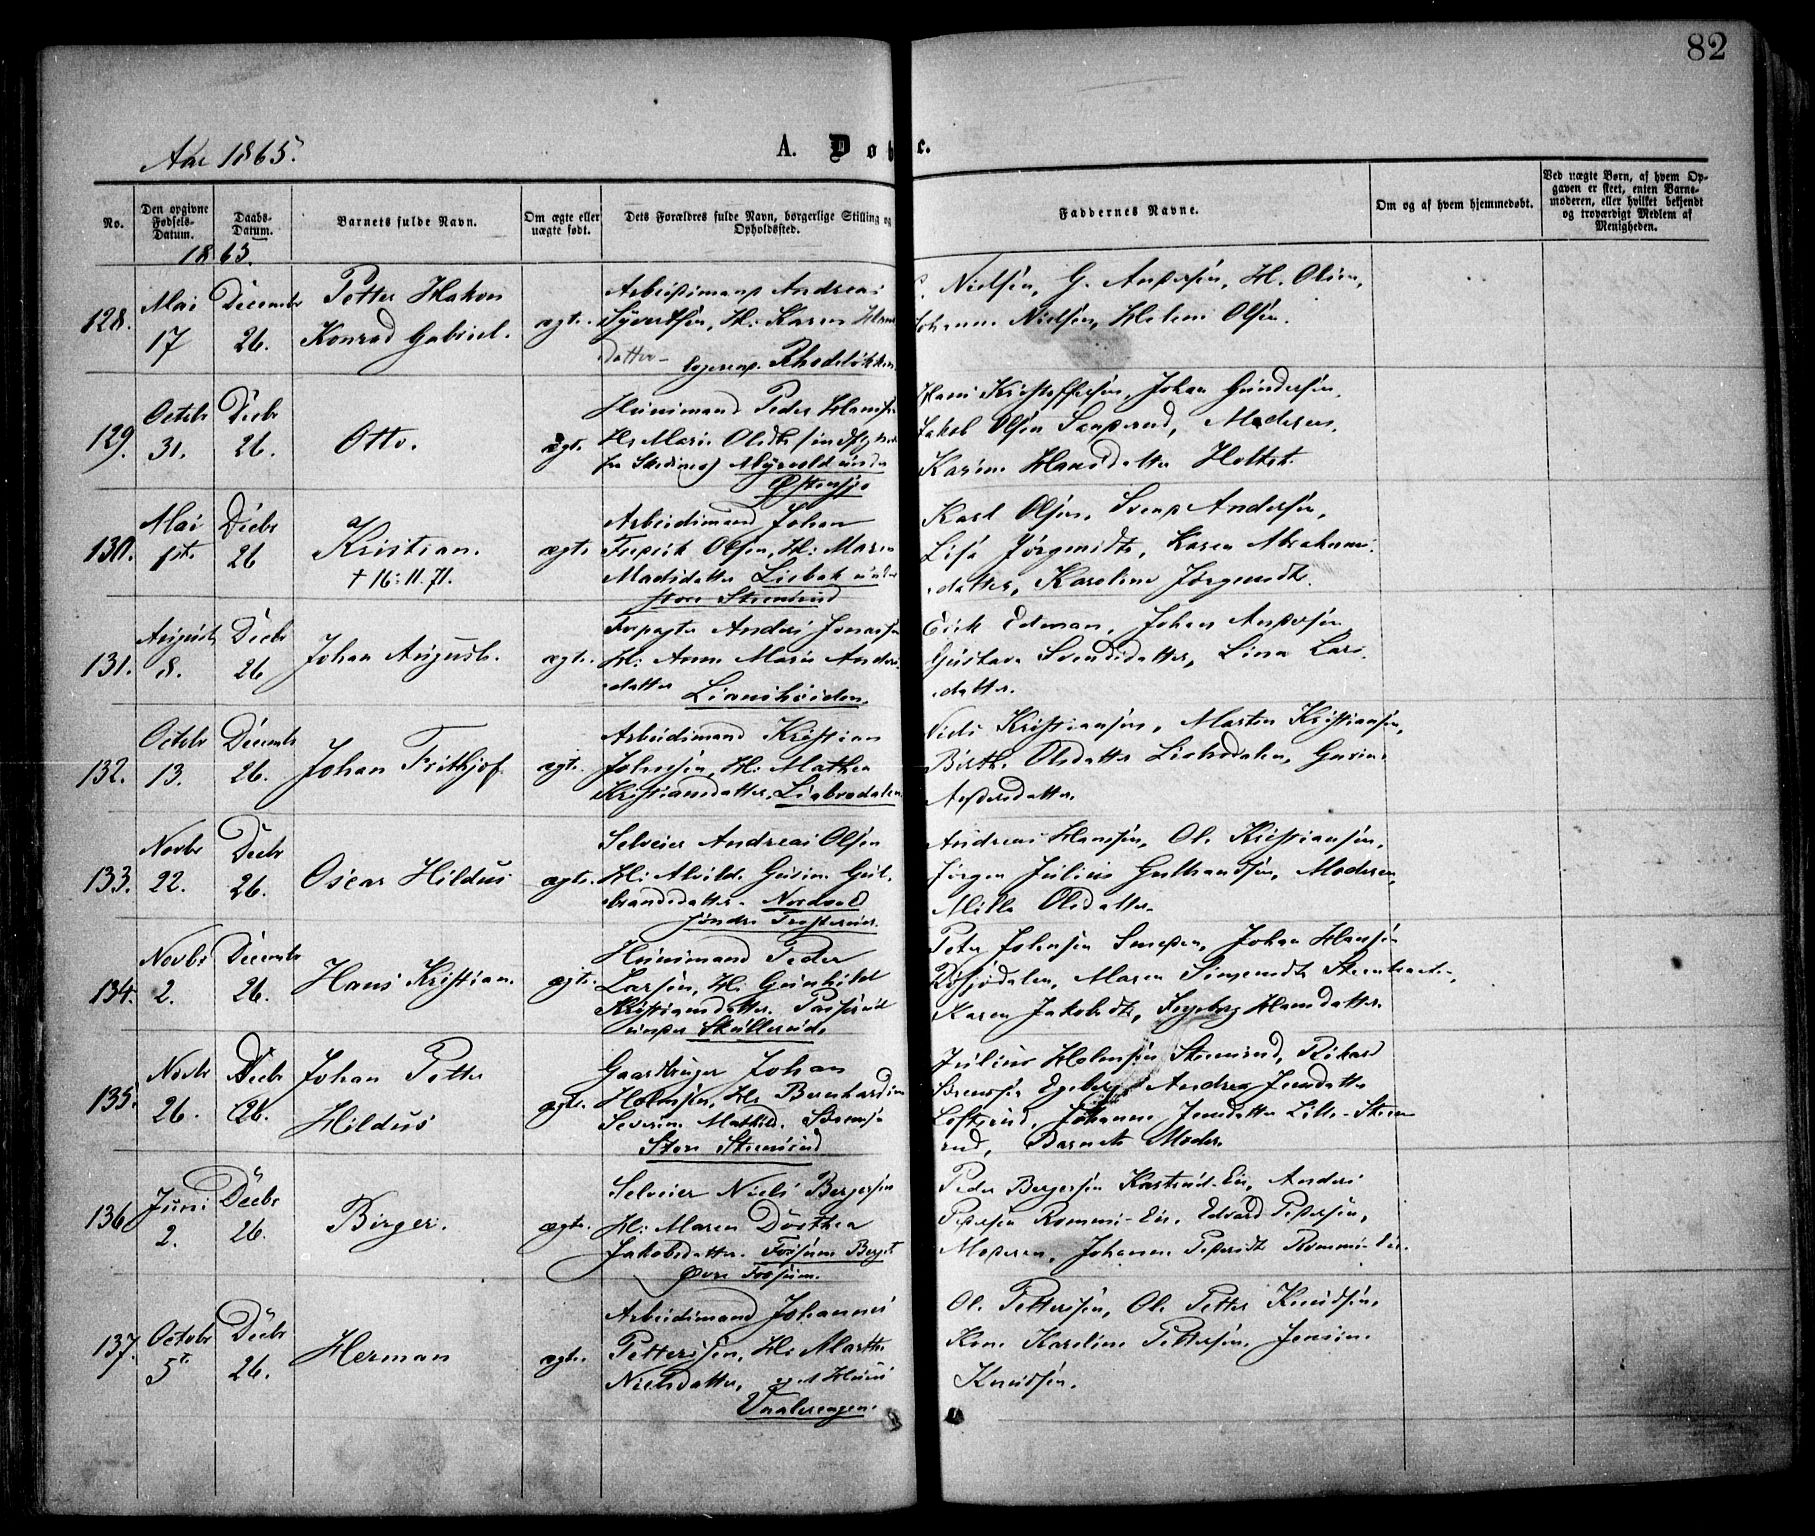 82
Aar 1865.
A. Døbte.
No.
Den opgivne Fødsels-Datum.
Daabs-Datum.
Barnets fulde Navn.
Om ægte eller uægte født.
Dets Forældres fulde Navn, borgerlige Stilling og Opholdssted.
Faddernes Navne.
Om og af hvem hjemmedøbt.
Ved uægte Børn, af hvem Opgaven er skeet, enten Barnemoderen, eller hvilket bekjendt og troværdigt Medlem af Menigheden.
1865.
128. Mai 17 Decembr 26. Petter Hakon Konrad Gabriel. ægte.
Arbeidsmand Andreas
Syvertsen, H: Karen
datter Rhodeløkken
Nielsen, G. Andersen, H. Olsen,
Johanne Nielsen, Helene Olsen.
129. Octobr 31. Decbr 26. Otto. ægte.
Huusmand Peder Hansen
H: Marie Olsdtr
Myrvold under
Østensjø
Hans Kristoffersen, Johan Gundersen
Jakob Olsen, Moderen,
Karine Hansdatter
130. Mai 1st. Decbr 26 Kristian. † 16:11.71. ægte.
Arbeidsmand Johan
Fredrik Olsen, H: Maren
Madsdatter Liabak under
store Steensrud
Karl Olsen, Svend Andersen,
Lise Jørgensdtr, Karen Abrahams-
datter, Karoline Jørgensdtr.
131. August 8. Decbr 26 Johan August. ægte.
Forpagter Anders Jonassen
H: Anne Marie Anders-
datter Lianshøiden.
Erik Edman, Johan Andersen
Gustava Svendsdatter, Lina Lars-
datter.
132. Octobr 13. Decembr 26. Johan Frithjof ægte.
Arbeidsmand Kristian
Johnsen, H: Mathea
Kristiansdatter, Liabrodalen
Niels Kristiansen, Martin Kristiansen,
Birthe Olsdatter, Gurine
Andersdatter.
133. Novbr 22. Decbr 26. Oscar Hildus ægte.
Selveier Andreas Olsen
H: Alvilde Gurine Gul-
brandsdatter. Nordvold
søndre
Andreas Hansen, Ole Kristiansen,
Jørgen Julius Gulbrandsen, Moderen,
Milla Olsdatter.
134. Novbr 2. Decembr 26. Hans Kristian. ægte.
Huusmand Peder
Larsen, H: Gunhild
Kristiansdatter.
under Skullerud.
Peter Johnsen, Johan Hansen
Maren
Karen Jakobsdtr, Ingeborg Hansdatter.
135. Novbr 26. Decbr 26. Johan Petter Hildus ægte.
Gaardbruger Johan
H: Bernhardine
Severine Mathilde
Store Steensrud
Julius Steensrud, Rikard
Egeberg, Andrea Jensdatter
Johanne Jensdatter Lille-Steens-
rud, Barnets Moder.
136 Juni 2. Decbr 26. Birger. ægte.
Selveier Niels Bergersen
H: Maren Dorthea
Jakobsdatter. Fossum Berget
Øvre Fossum.
Peder Bergersen, Anders
Pedersen Rommi-Eie. Edvard Pedersen,
Moderen, Johanne Pedersdtr Rommi-Eie.
137. Octobr 5te Decbr 26. Herman ægte.
Arbeidsmand Johannes
Pettersen, H: Marthe
Nielsdatter,
Vaalerengen.
Ole Pettersen, Ole Petter Knudsen,
Kone Karoline Pettersen, Jensine
Knudsen.